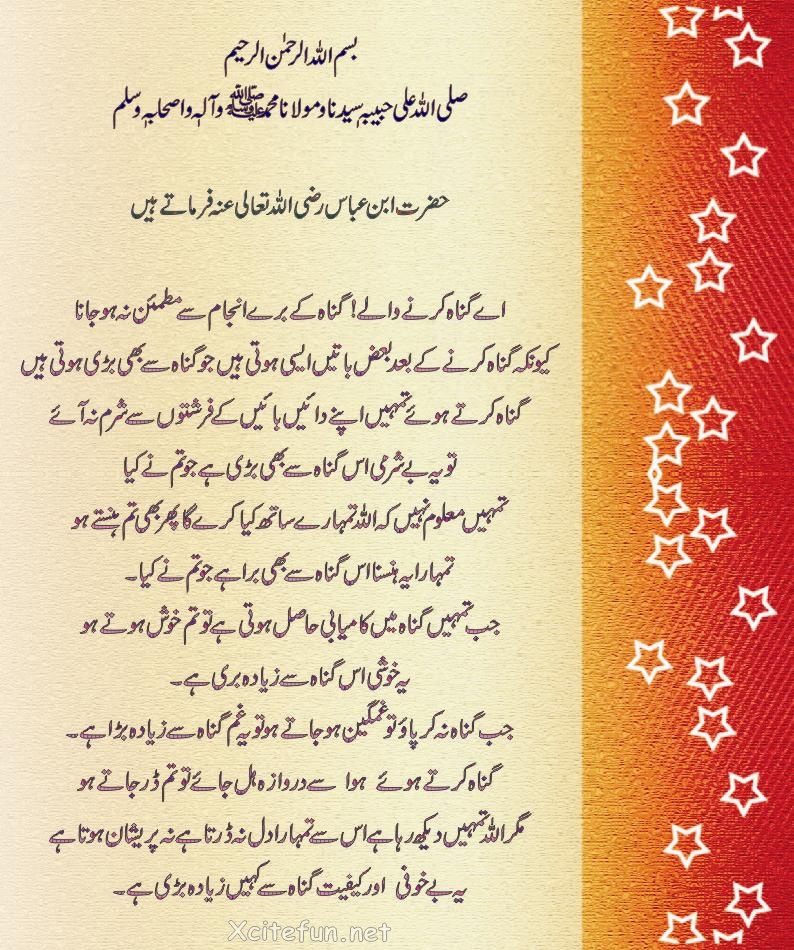 بسم اللہ الرحمٰن الرحیم
صلی اللہ علی حبیبہٖ سیدنا و مولانا محمد ﷺ وآلہٖ واصحابہٖ وسلم
حضرت ابن عباس رضی اللہ تعالی عنہ فرماتے ہیں
اے گناہ کرنے والے! گناہ کے برے انجام سے مطمئن نہ ہو جانا
کیونکہ گناہ کرنے کے بعد بعض باتیں ایسی ہوتی ہیں جو گناہ سے بھی بڑی ہوتی ہیں
گناہ کرتے ہوئے تمہیں اپنے دائیں بائیں کے فرشتوں سے شرم نہ آئے
تو یہ بے شرمی اس گناہ سے بھی بڑی ہے جو تم نے کیا
تمہیں معلوم نہیں کہ اللہ تمہارے ساتھ کیا کرے گا پھر بھی تم ہنستے ہو
تمہارا یہ ہنسنا اس گناہ سے بھی برا ہے جو تم نے کیا۔
جب تمہیں گناہ میں کامیابی حاصل ہوتی ہے تو تم خوش ہوتے ہو
یہ خوشی اس گناہ سے زیادہ بری ہے۔
جب گناہ نہ کر پاؤ تو غمگین ہو جاتے ہو تو یہ غم گناہ سے زیادہ بڑا ہے۔
گناہ کرتے ہوئے ہوا سے دروازہ ہل جائے تو تم ڈر جاتے ہو
مگر اللہ تمہیں دیکھ رہا ہے اس سے تمہارا دل نہ ڈرتا ہے نہ پریشان ہوتا ہے
یہ بے خوفی اور کیفیت گناہ سے کہیں زیادہ بڑی ہے۔
Xcitefun.net